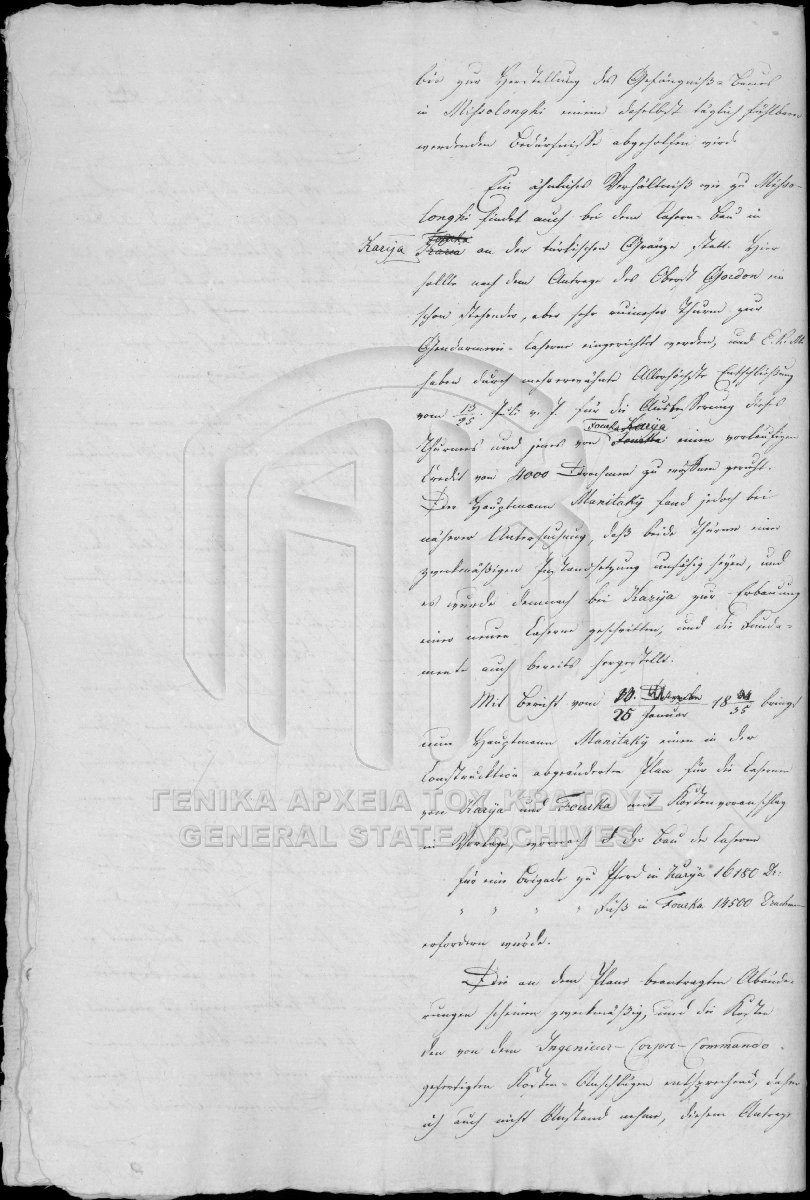 bis zur Herstellung des Gefängniß-Baues
in Missolonghi einem daselbst täglich fühlbarer
werdenden Bedürfnisse abgeholfen wird.
Ein ähnliches Verhältniß wie zu Misso-
longhi findet auch bei dem Casern-Bau in
Karija an der türkischen Gränze statt. Hier
sollte nach dem Antrage des Oberst Gordon ein
schon stehender, aber sehr ruinoser Thurm zur
Gendarmerie-Caserne eingerichtet werden, und E. k. M.
haben durch mehrerwähnte Allerhöchste Entschließung
vom 13/25. Juli v. J. für die Ausbesserung dieses
Thurmes und jenes von Fourka einen vorläufigen
Credit von 4000 Drachmen zu eröffnen geruht.
Der Hauptmann Manitaky fand jedoch bei
näherer Untersuchung, daß beide Thürme einer
zweckmäßigen Instandsetzung unfähig seyen, und
es wurde demnach bei Karija zur Erbauung
einer neuen Caserne geschritten, und die Funda-
mente auch bereits hergestellt.
Mit Bericht vom Januar 18 34/35 bringt
nun Hauptmann Manitaky einen in der
Construktion abgeänderten Plan für die Casernen
von Karija und Fourka mit Kostenvoranschlag
in Vorlage, wornach der Bau der Caserne
für eine Brigade zu Pferd in Karija 16180 Dr.
" " " " Fuß in Fourka 14500 Drachmen
erfordern würde.
Die an dem Plane beantragten Abände-
rungen scheinen zweckmäßig, und die Kosten
den von dem Ingenieur-Corps-Commando
gefertigten Kosten-Anschlägen entsprechend, daher
ich auch nicht Anstand nehme, diesem Antrage
ΓΕΝΙΚΑ ΑΡΧΕΙΑ ΤΟΥ ΚΡΑΤΟΥΣ
GENERAL STATE ARCHIVES